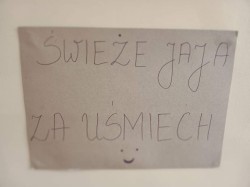 ŚWIEŻE JAJA
ZA UŚMIECH